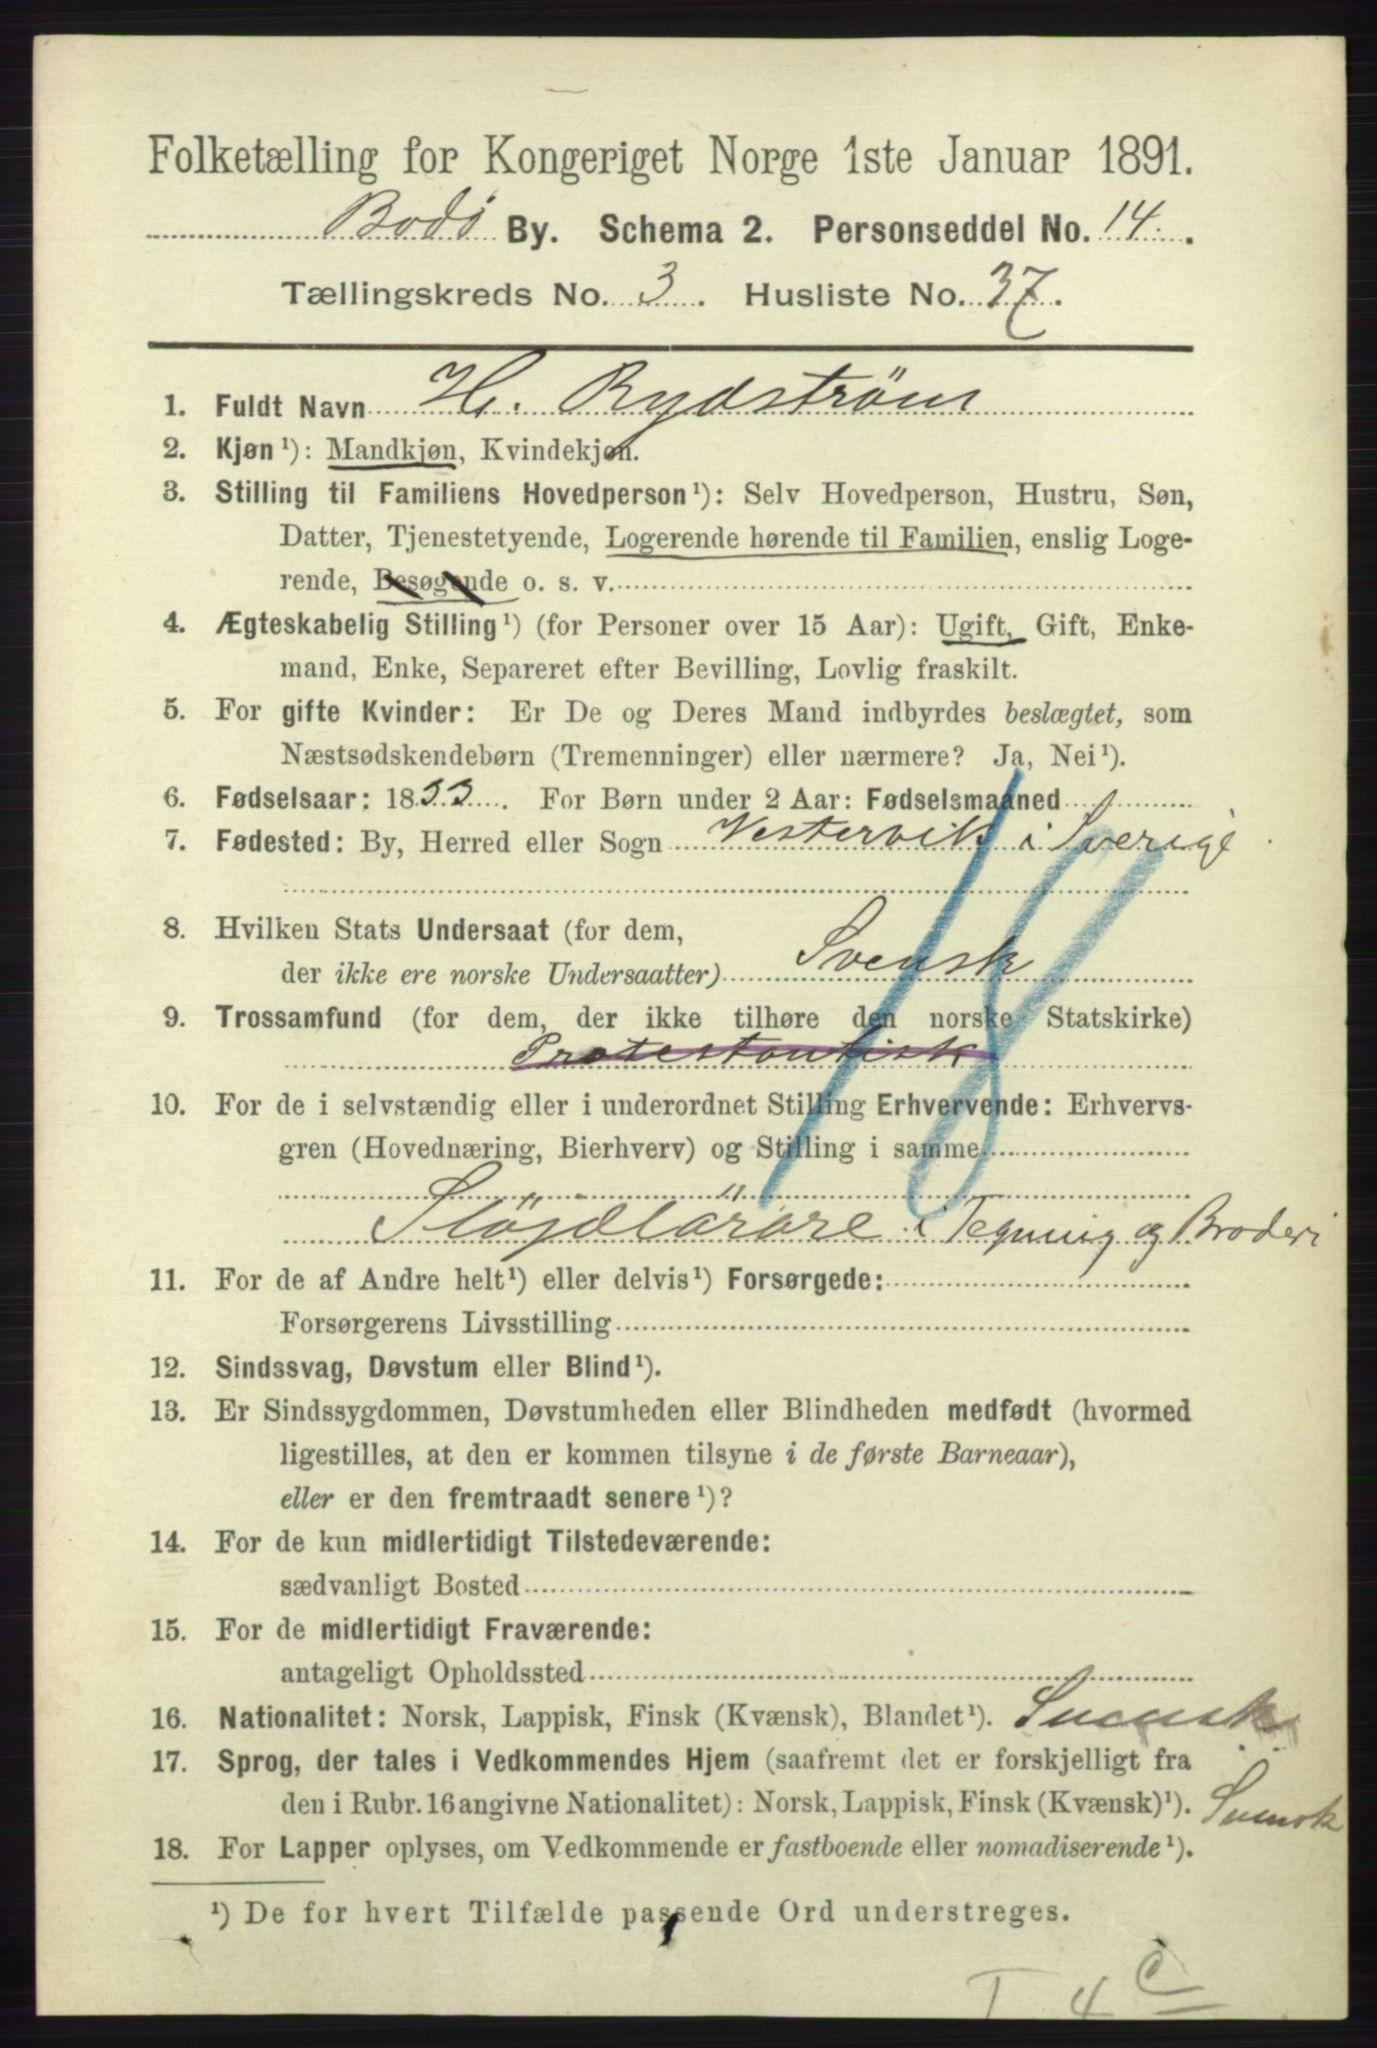 Folketælling for Kongeriget Norge 1ste Januar 1891.
Bodö By. Schema 2. Personseddel No. 14.
Tællingskreds No. 3. Husliste No. 37.
1. Fuldt Navn H. Rydström
2. Kjøn¹): Mandkjøn, Kvindekjøn.
3. Stilling til Familiens Hovedperson¹): Selv Hovedperson, Hustru, Søn,
Datter, Tjenestetyende, Logerende hørende til Familien, enslig Loge-
rende, Besøgende o. s. v.
4. Ægteskabelig Stilling¹) (for Personer over 15 Aar): Ugift, Gift, Enke-
mand, Enke, Separeret efter Bevilling, Lovlig fraskilt.
5. For gifte Kvinder: Er De og Deres Mand indbyrdes beslægtet, som
Næstsødskendebørn (Tremenninger) eller nærmere? Ja, Nei¹).
6. Fødselsaar: 1833. For Børn under 2 Aar: Fødselsmaaned
7. Fødested: By, Herred eller Sogn Vestervik i Sverige
8. Hvilken Stats Undersaat (for dem,
der ikke ere norske Undersaatter) Svensk
9. Trossamfund (for dem, der ikke tilhøre den norske Statskirke)
Protestantisk
10. For de i selvstændig eller i underordnet Stilling Erhvervende: Erhvervs-
gren (Hovednæring, Bierhverv) og Stilling i samme
Slöjdlärare i Tegning og Broderi
18
11. For de af Andre helt¹) eller delvis¹) Forsørgede:
Forsørgerens Livsstilling
12. Sindssvag, Døvstum eller Blind¹).
13. Er Sindssygdommen, Døvstumheden eller Blindheden medfødt (hvormed
ligestilles, at den er kommen tilsyne i de første Barneaar),
eller er den fremtraadt senere¹)?
14. For de kun midlertidigt Tilstedeværende:
sædvanligt Bosted
15. For de midlertidigt Fraværende:
antageligt Opholdssted
16. Nationalitet: Norsk, Lappisk, Finsk (Kvænsk), Blandet¹). Svensk
17. Sprog, der tales i Vedkommendes Hjem (saafremt det er forskjelligt fra
den i Rubr. 16 angivne Nationalitet): Norsk, Lappisk, Finsk (Kvænsk)¹). Svensk
18. For Lapper oplyses, om Vedkommende er fastboende eller nomadiserende¹).
¹) De for hvert Tilfælde passende Ord understreges.
T 4 c